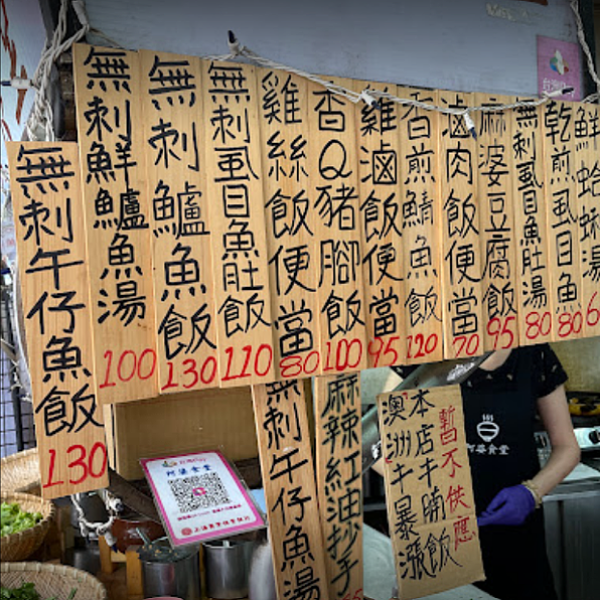 無刺午仔魚飯 130
無刺鮮鱸魚湯 100
無刺鱸魚飯 130
無刺虱目魚肚飯 110
雞絲飯便當 80
香Q豬腳飯 100
雞滷飯便當 95
香煎鯖魚飯 120
滷肉飯便當 70
麻婆豆腐飯 95
無刺虱目魚肚湯 80
乾煎虱目魚 80
鮮蛤蜊湯 6
無刺午仔魚湯
麻辣紅油抄手
本店牛腩飯
澳洲牛暴漲
暫不供應
阿婆食堂
阿婆食堂